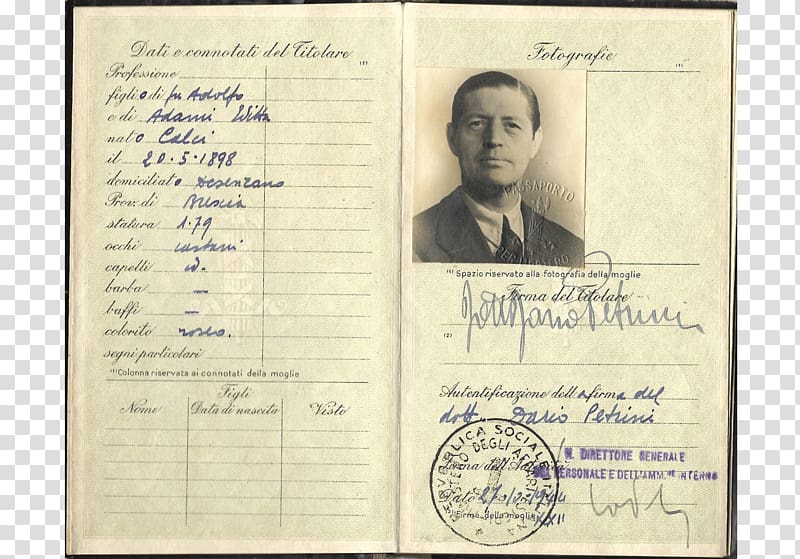 Dati e connotati del Titolare
(1)
Professione
figlio di fu Adolfo
e di Adami
nato Calci
il 20.5.1898
domiciliato Desenzano
Prov. di Brescia
statura 1.79
occhi castani
capelli id.
barba —
baffi —
colorito roseo.
segni particolari
(1)Colonna riservata ai connotati della moglie
Figli
Nome Data di nascita Visto
Fotografie
(1)
PASSAPORTO
PER L'ESTERO
(1) Spazio riservato alla fotografia della moglie
Firma del Titolare
Petrini
(2)
Autentificazione della firma del
dott. Dario Petrini
REPUBBLICA SOCIALE ITALIANA
MINISTERO DEGLI AFFARI
IL DIRETTORE GENERALE
DEL PERSONALE E DELL'AMM.NE INTERNA
Firma dell'Autorità
Dato 27
XXII
(2) Firma della moglie